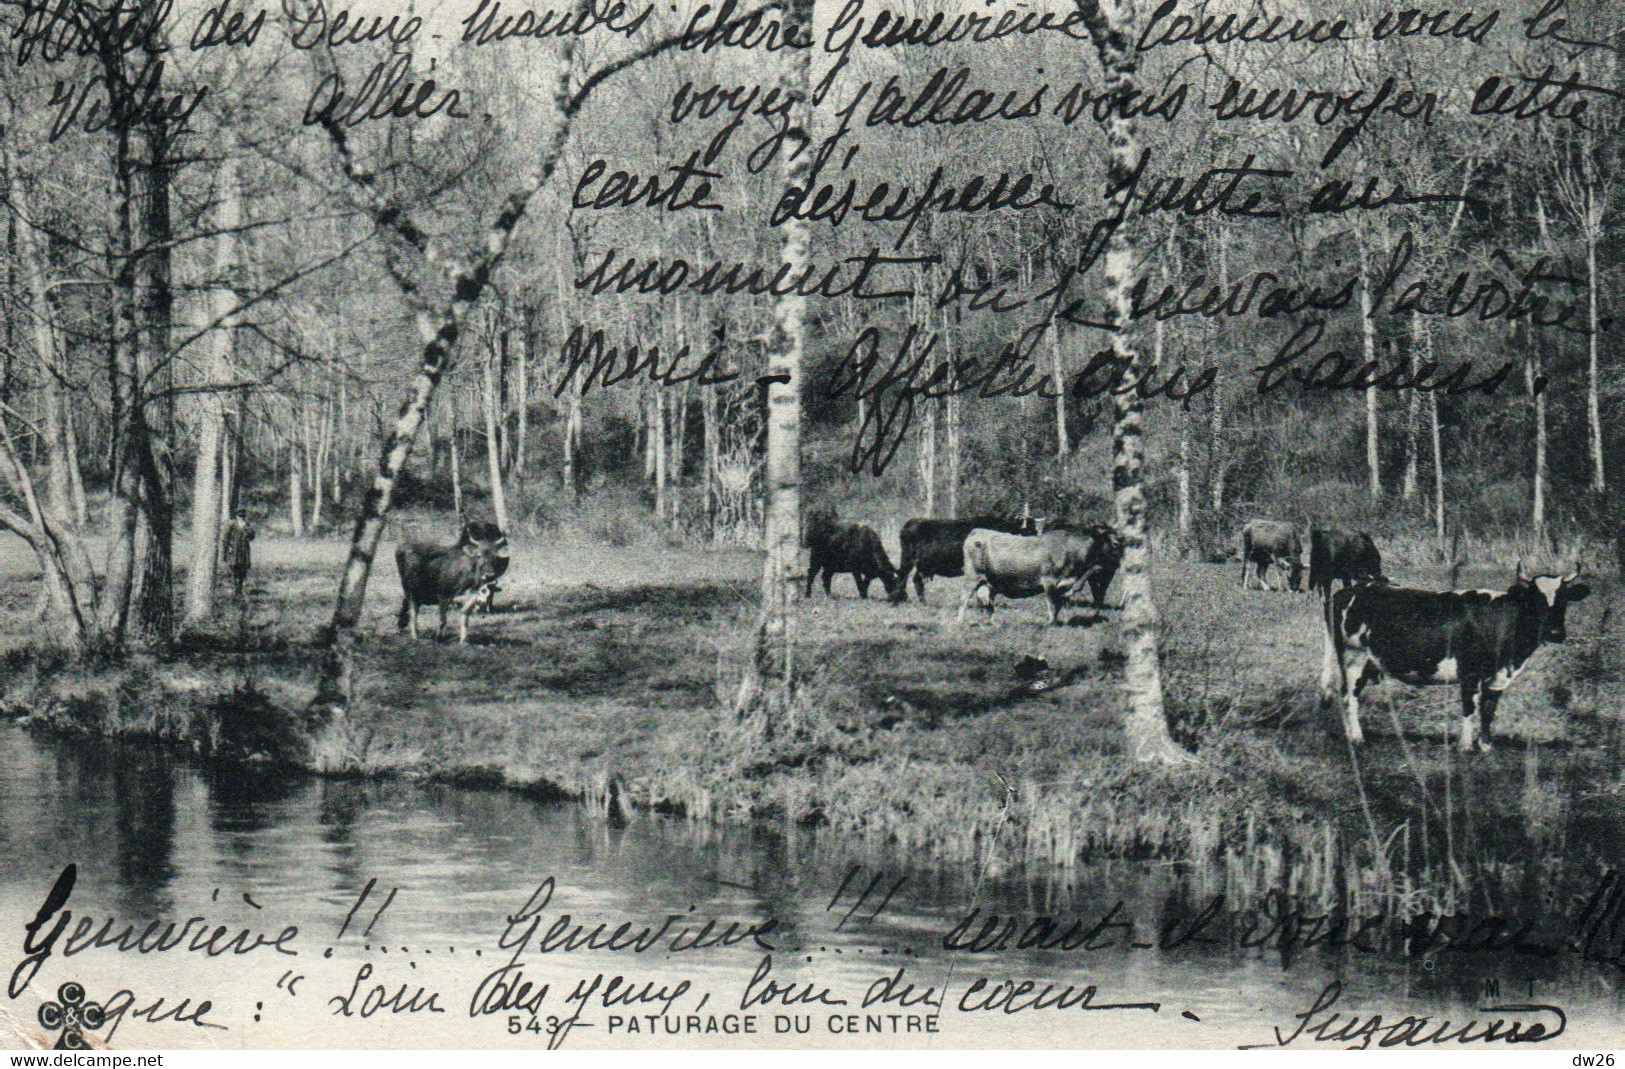 Hôtel des Deux-Mondes
Vichy Allier.
Chère Geneviève Comme vous le
voyez, j'allais vous envoyer cette
carte désespérée juste au
moment où je recevais la vôtre.
Merci - Affectueux baisers.
Geneviève!!...... Geneviève!!!...... serait-il donc vrai!!!
que : "Loin des yeux, loin du cœur -
Suzanne
C C & C C
543 - PATURAGE DU CENTRE
M T
dw26
www.delcampe.net